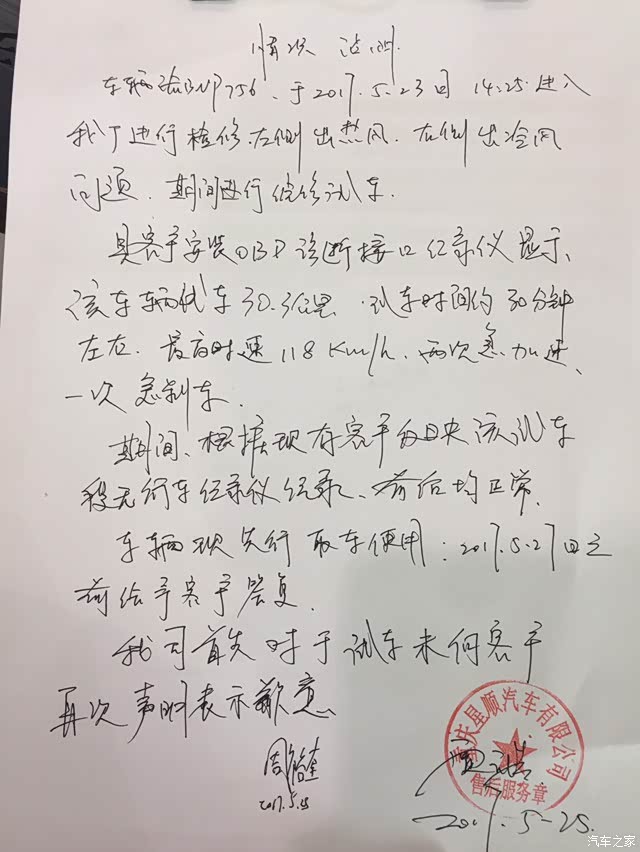 情况说明
车辆渝BNP756、于2017.5.23日14:25进入
我厂进行检修.左侧出热风.右侧出冷风
问题.期间进行维修试车.
具客户安装OBD诊断接口记录仪显示、
该车辆试车30.3公里.试车时间约30分钟
左右.最高时速118Km/h.两次急加速、
一次急刹车.
期间、根据现有客户反映该试车
段无行车记录仪记录、前后均正常.
车辆现先行取车使用:2017.5.27日之
前给予客户答复.
我司首先对于试车未向客户
再次声明表示歉意、
庆星顺汽车有限公司
售后服务章
周
2017.5.25
2017.5-25.
汽车之家